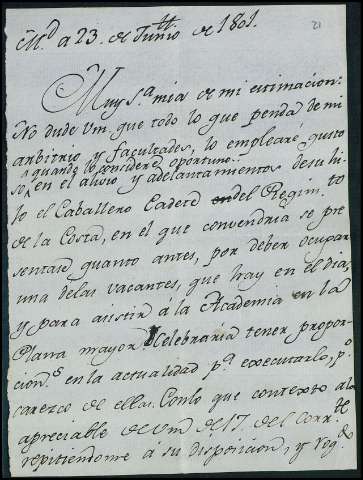 21
M.d a 23. de Junio de 1801.
Muy S.a mia de mi estimacion:
No dude Vm. que todo lo que penda de mi
arbitrio y facultades, lo emplearé gusto
quando lo considere oportuno
so, en el alivio y adelantamientos de su hi-
jo el Caballero Cadete del Regim.to
de la Costa, en el que convendria se pre
sentase quanto antes, por deber ocupar
una delas vacantes, que hay en el dia,
y para asistir á la Academia en la
Plana mayor. Celebraria tener propor-
cion.s en la actualidad p.a executarlo, p.o
carezco de ellas. Con lo que contexto a la
apreciable de Vm de 17. del Corr.te
repitiendome á su disposicion, y rog.do